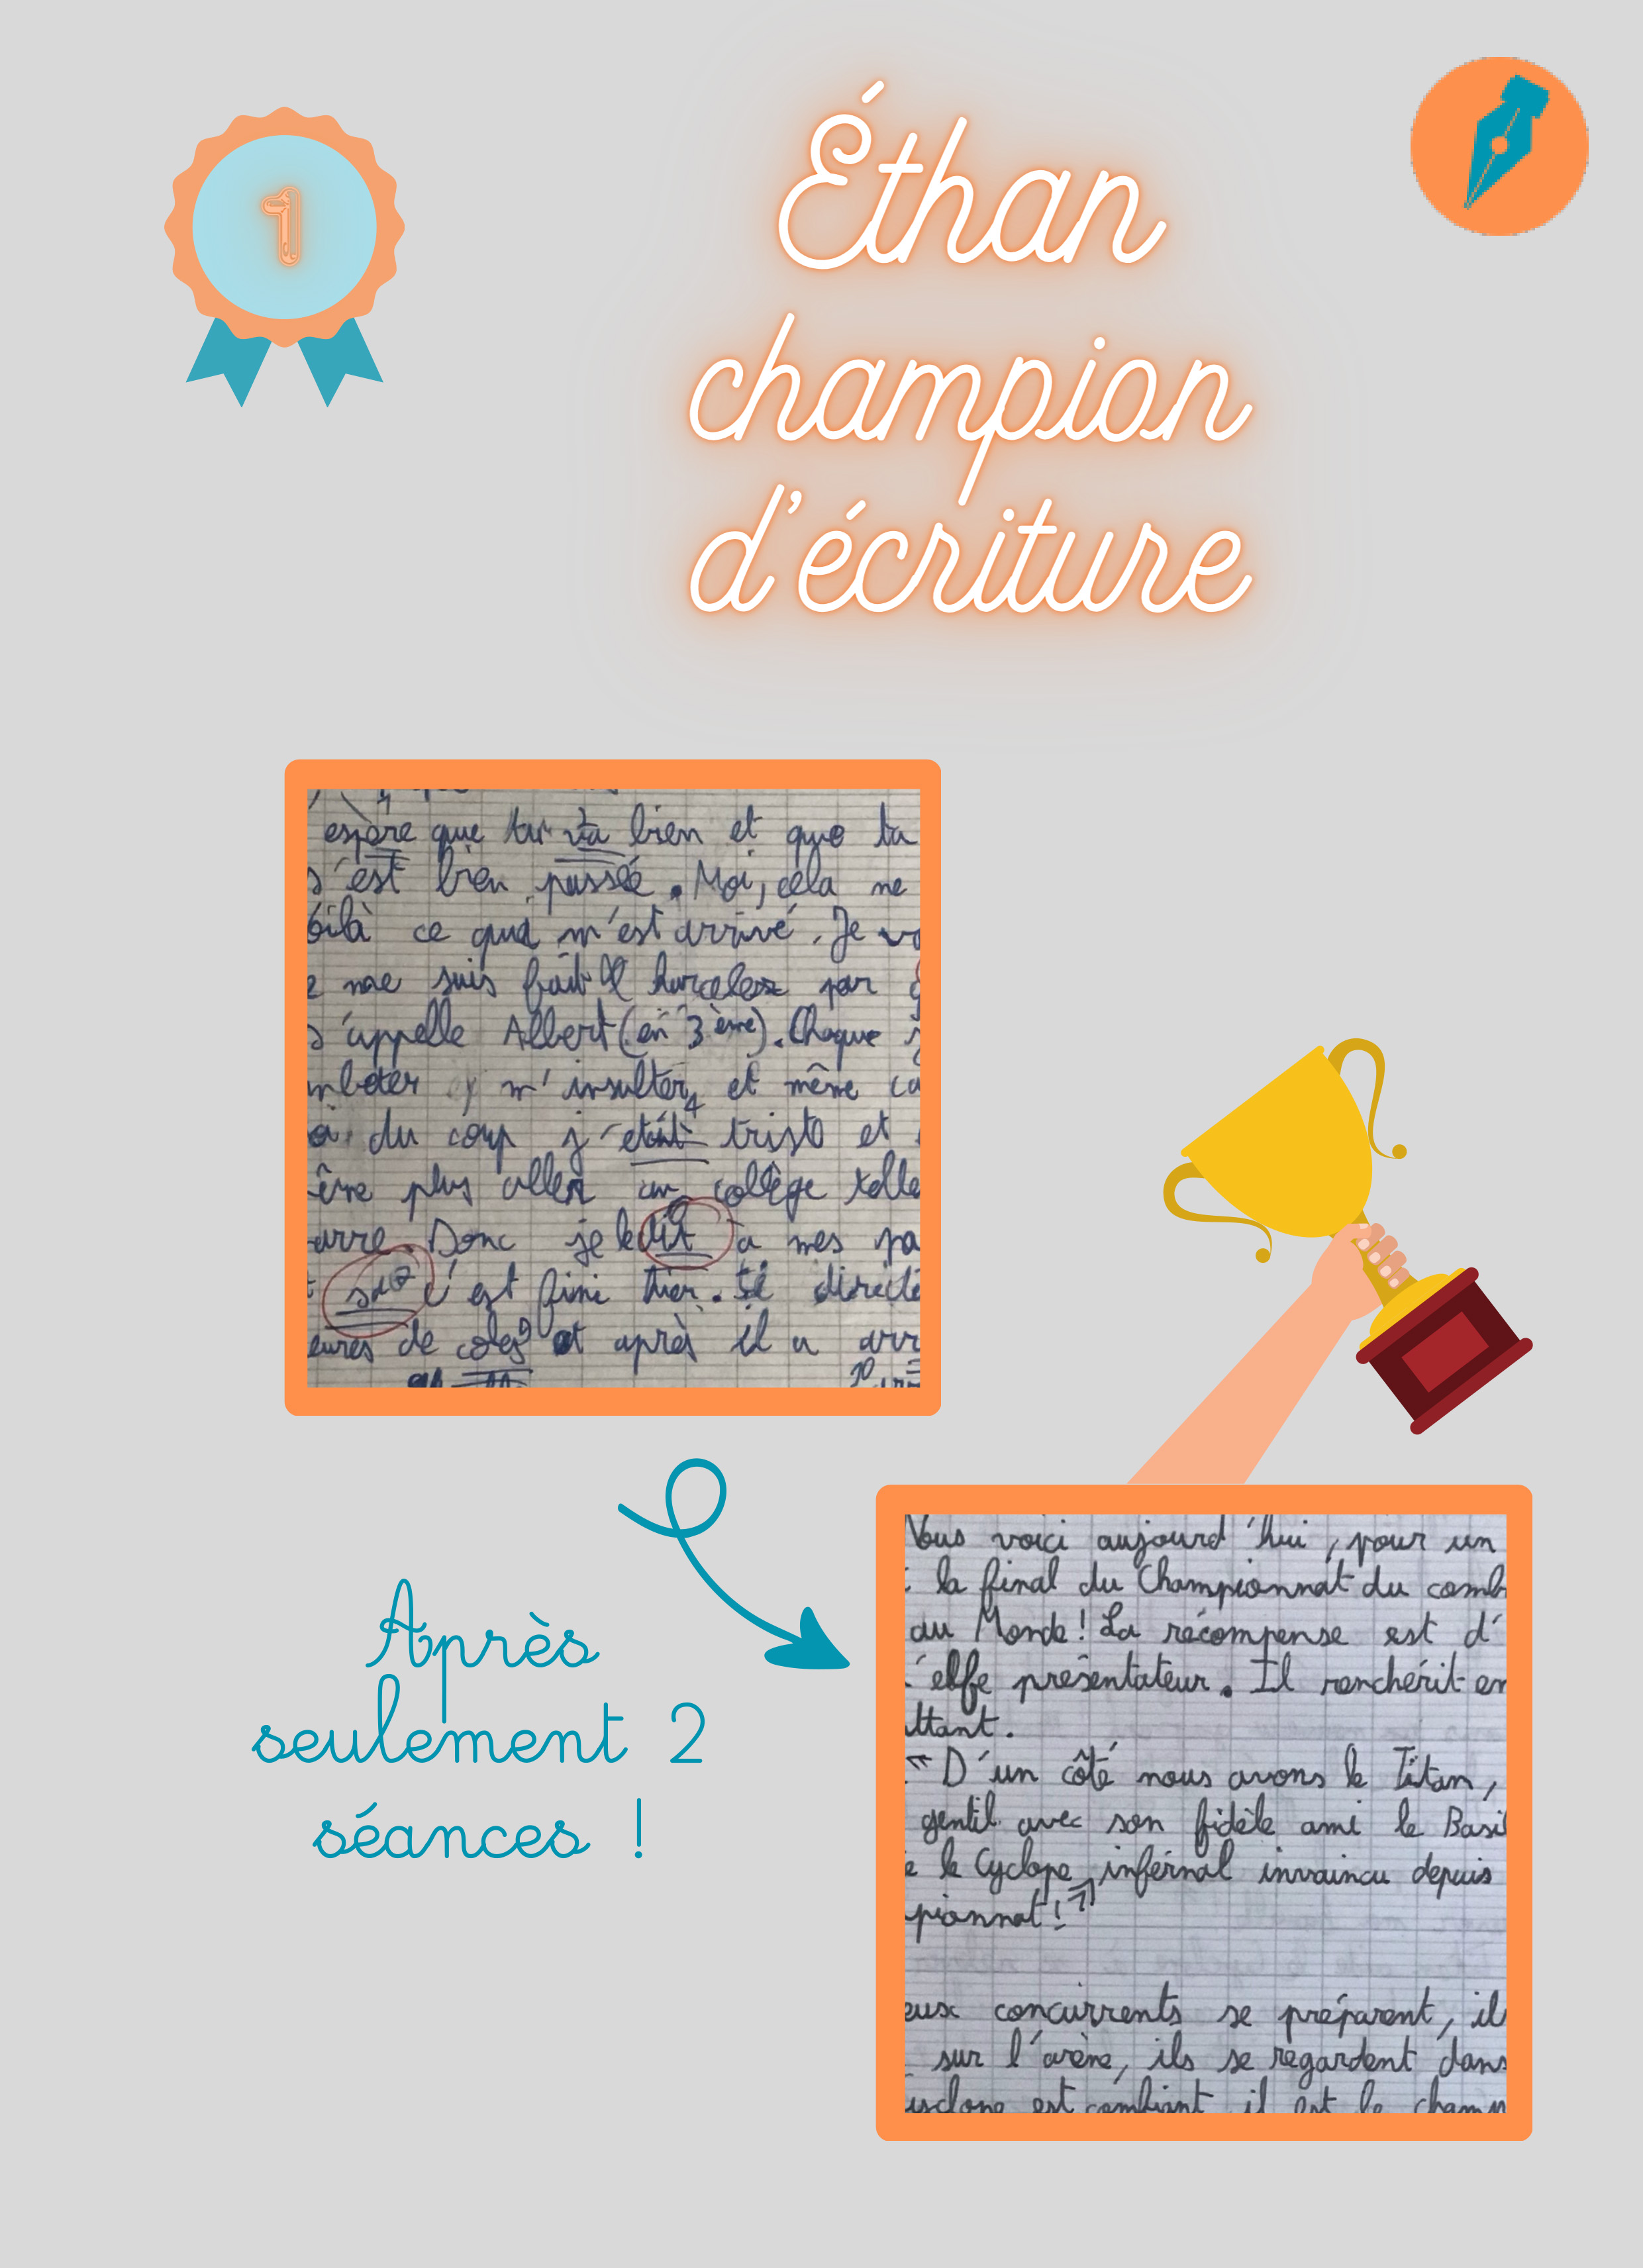 1
Éthan
champion
d'écriture
espère que tu va bien et que ta
s'est bien passée. Moi, cela ne
oilà ce qui m'est arrivé. Je
me suis fait harceler par
s'appelle Albert (en 3ème). Chaque
m'insulter, et même
du coup j'etait triste et
plus aller au collège
Donc je le dit à mes pa
c'est fini hier.
eures de coles et après il a arr
Après
seulement 2
séances !
Vous voici aujourd'hui, pour un
la final du Championnat du comb
au Monde! La récompense est d'
'elfe présentateur. Il renchérit en
ttant.
« D'un côté nous avons le Titan,
gentil avec son fidèle ami le Basi
e le Cyclope infernal invaincu depuis
pionnat! »
eux concurrents se préparent, il
sur l'arène, ils se regardent dans
est il est le champ